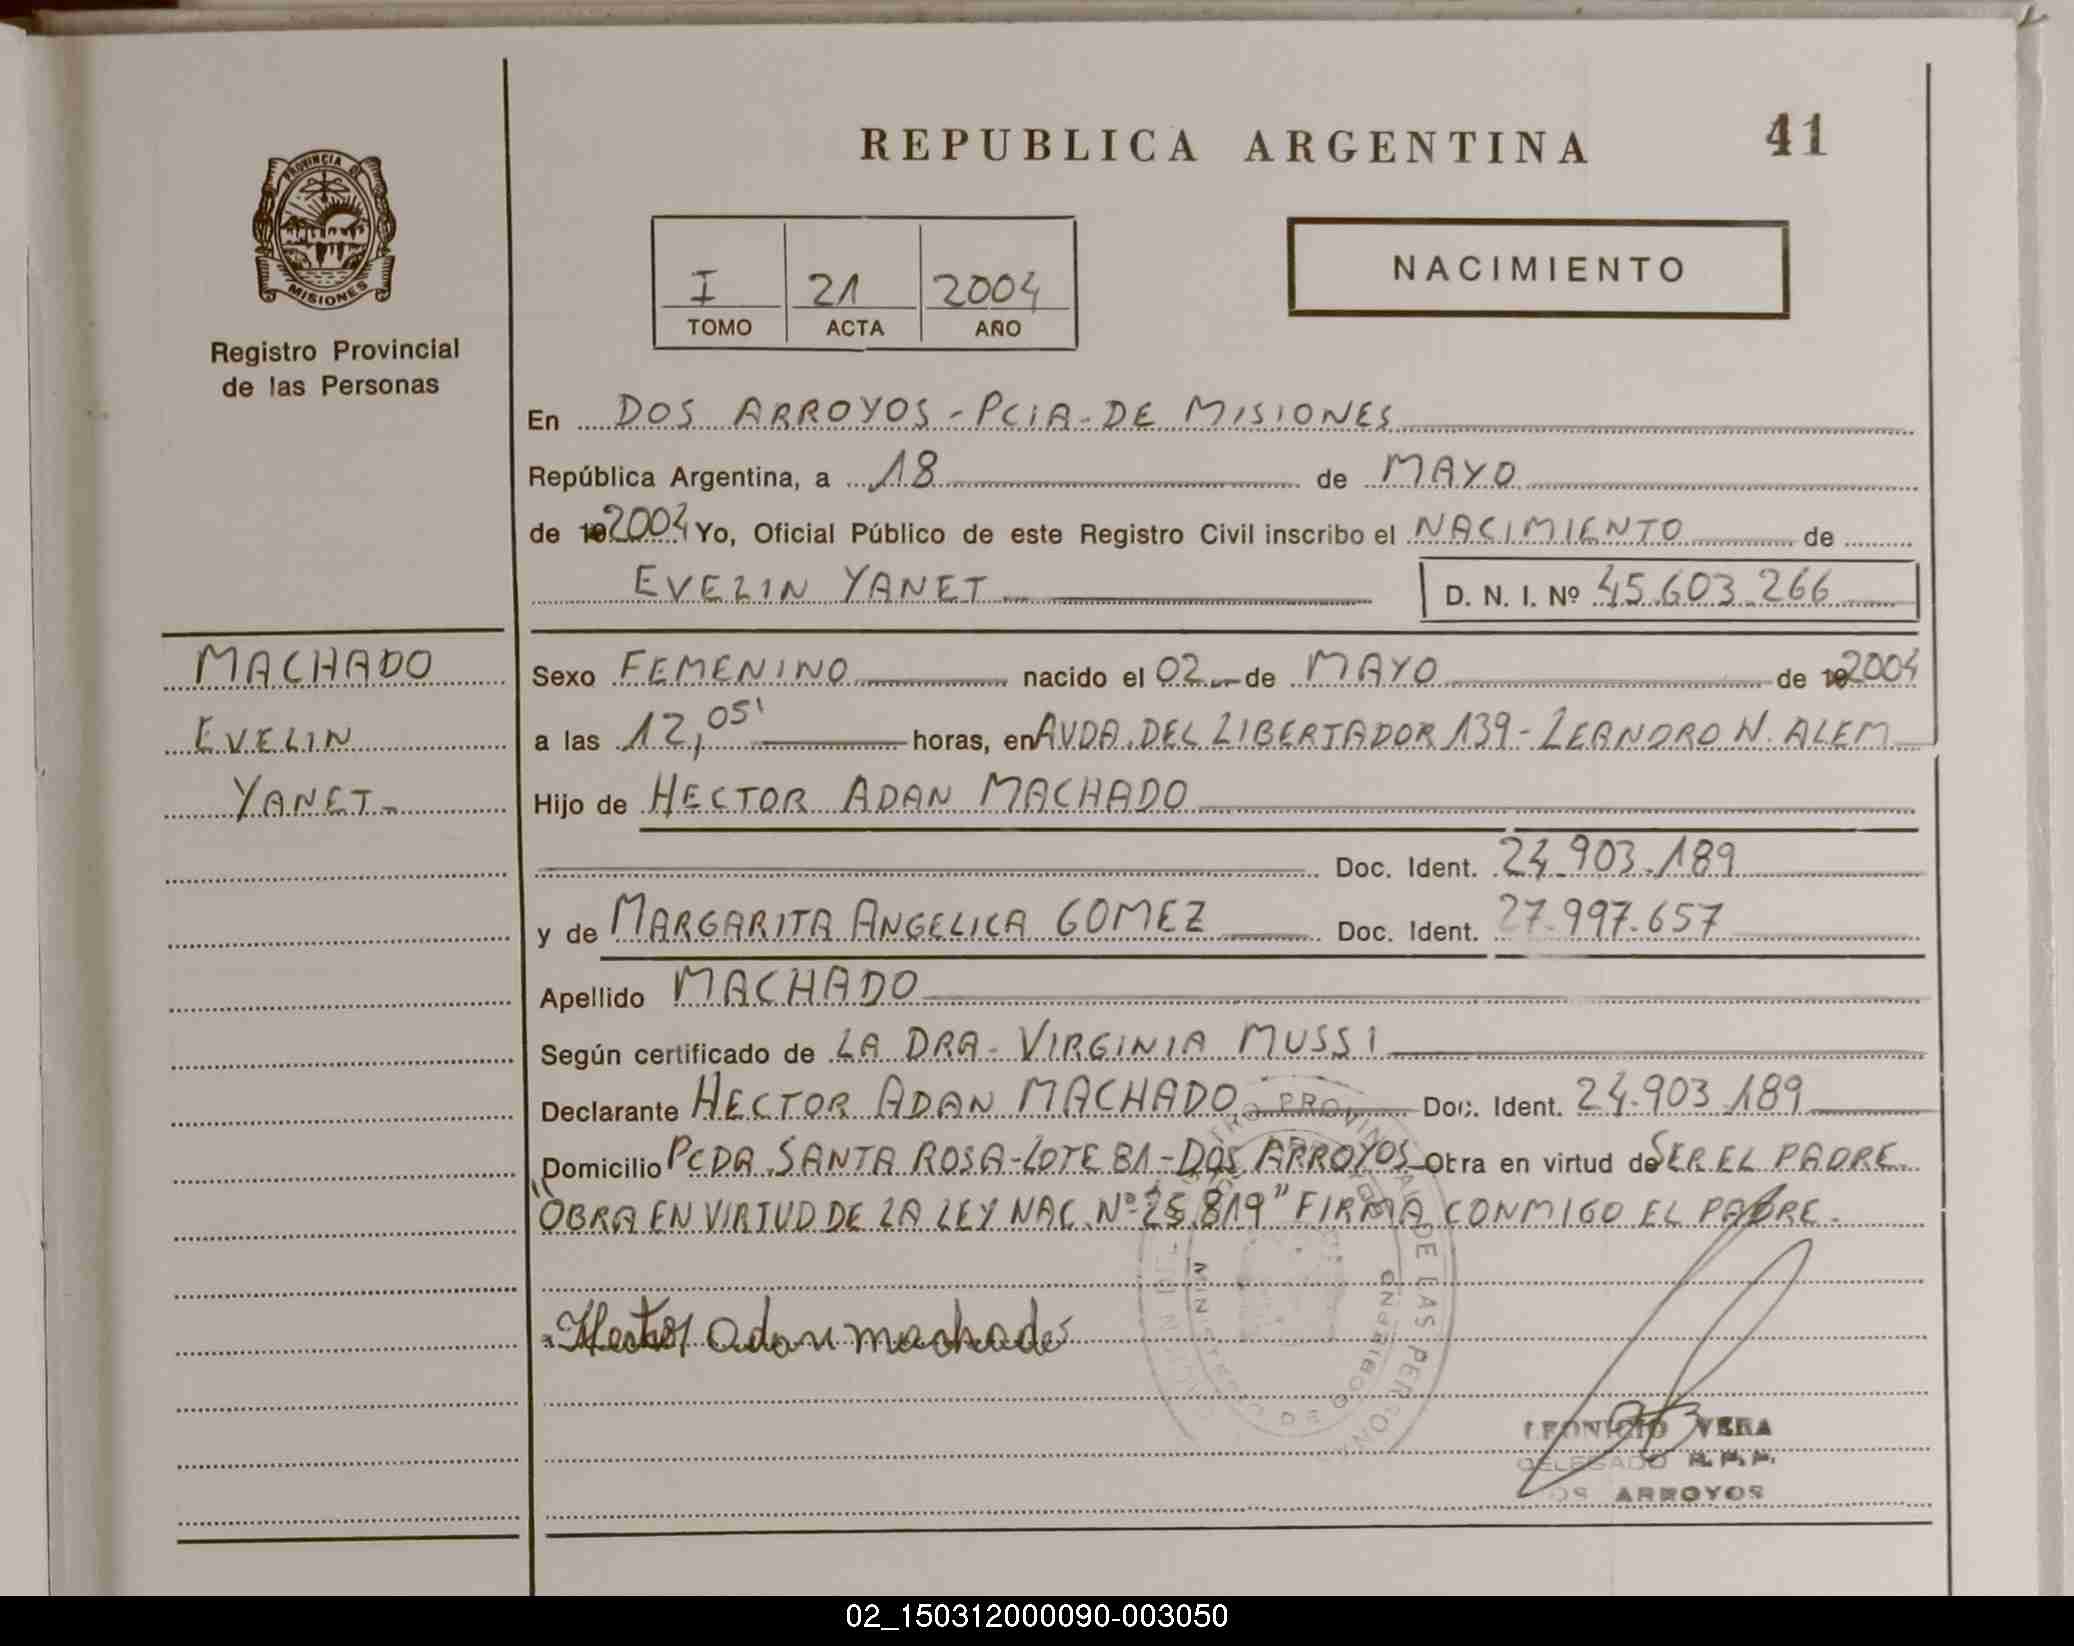 REPUBLICA ARGENTINA
41
PROVINCIA DE
MISIONES
Registro Provincial
de las Personas
I 21 2004
TOMO ACTA AÑO
NACIMIENTO
En DOS ARROYOS - PCIA - DE MISIONES
República Argentina, a 18 de MAYO
de 19 2004 Yo, Oficial Público de este Registro Civil inscribo el NACIMIENTO de
EVELIN YANET D. N. I. Nº 45.603.266
MACHADO
EVELIN
YANET-
Sexo FEMENINO nacido el 02 de MAYO de 19 2004
a las 12,05' horas, en AVDA. DEL LIBERTADOR 139 - LEANDRO N. ALEM
Hijo de HECTOR ADAN MACHADO
Doc. Ident. 24.903.189
y de MARGARITA ANGELICA GOMEZ Doc. Ident. 27.997.657
Apellido MACHADO
Según certificado de LA DRA - VIRGINIA MUSSI
Declarante HECTOR ADAN MACHADO Doc. Ident. 24.903.189
Domicilio PCDA. SANTA ROSA - LOTE 81 - DOS ARROYOS Obra en virtud de SER EL PADRE.
"OBRA EN VIRTUD DE LA LEY NAC. Nº 25.819" FIRMA CONMIGO EL PADRE.
Hector adan machado
LEONICIO VERA
DELEGADO R.P.P.
DOS ARROYOS
02_150312000090-003050